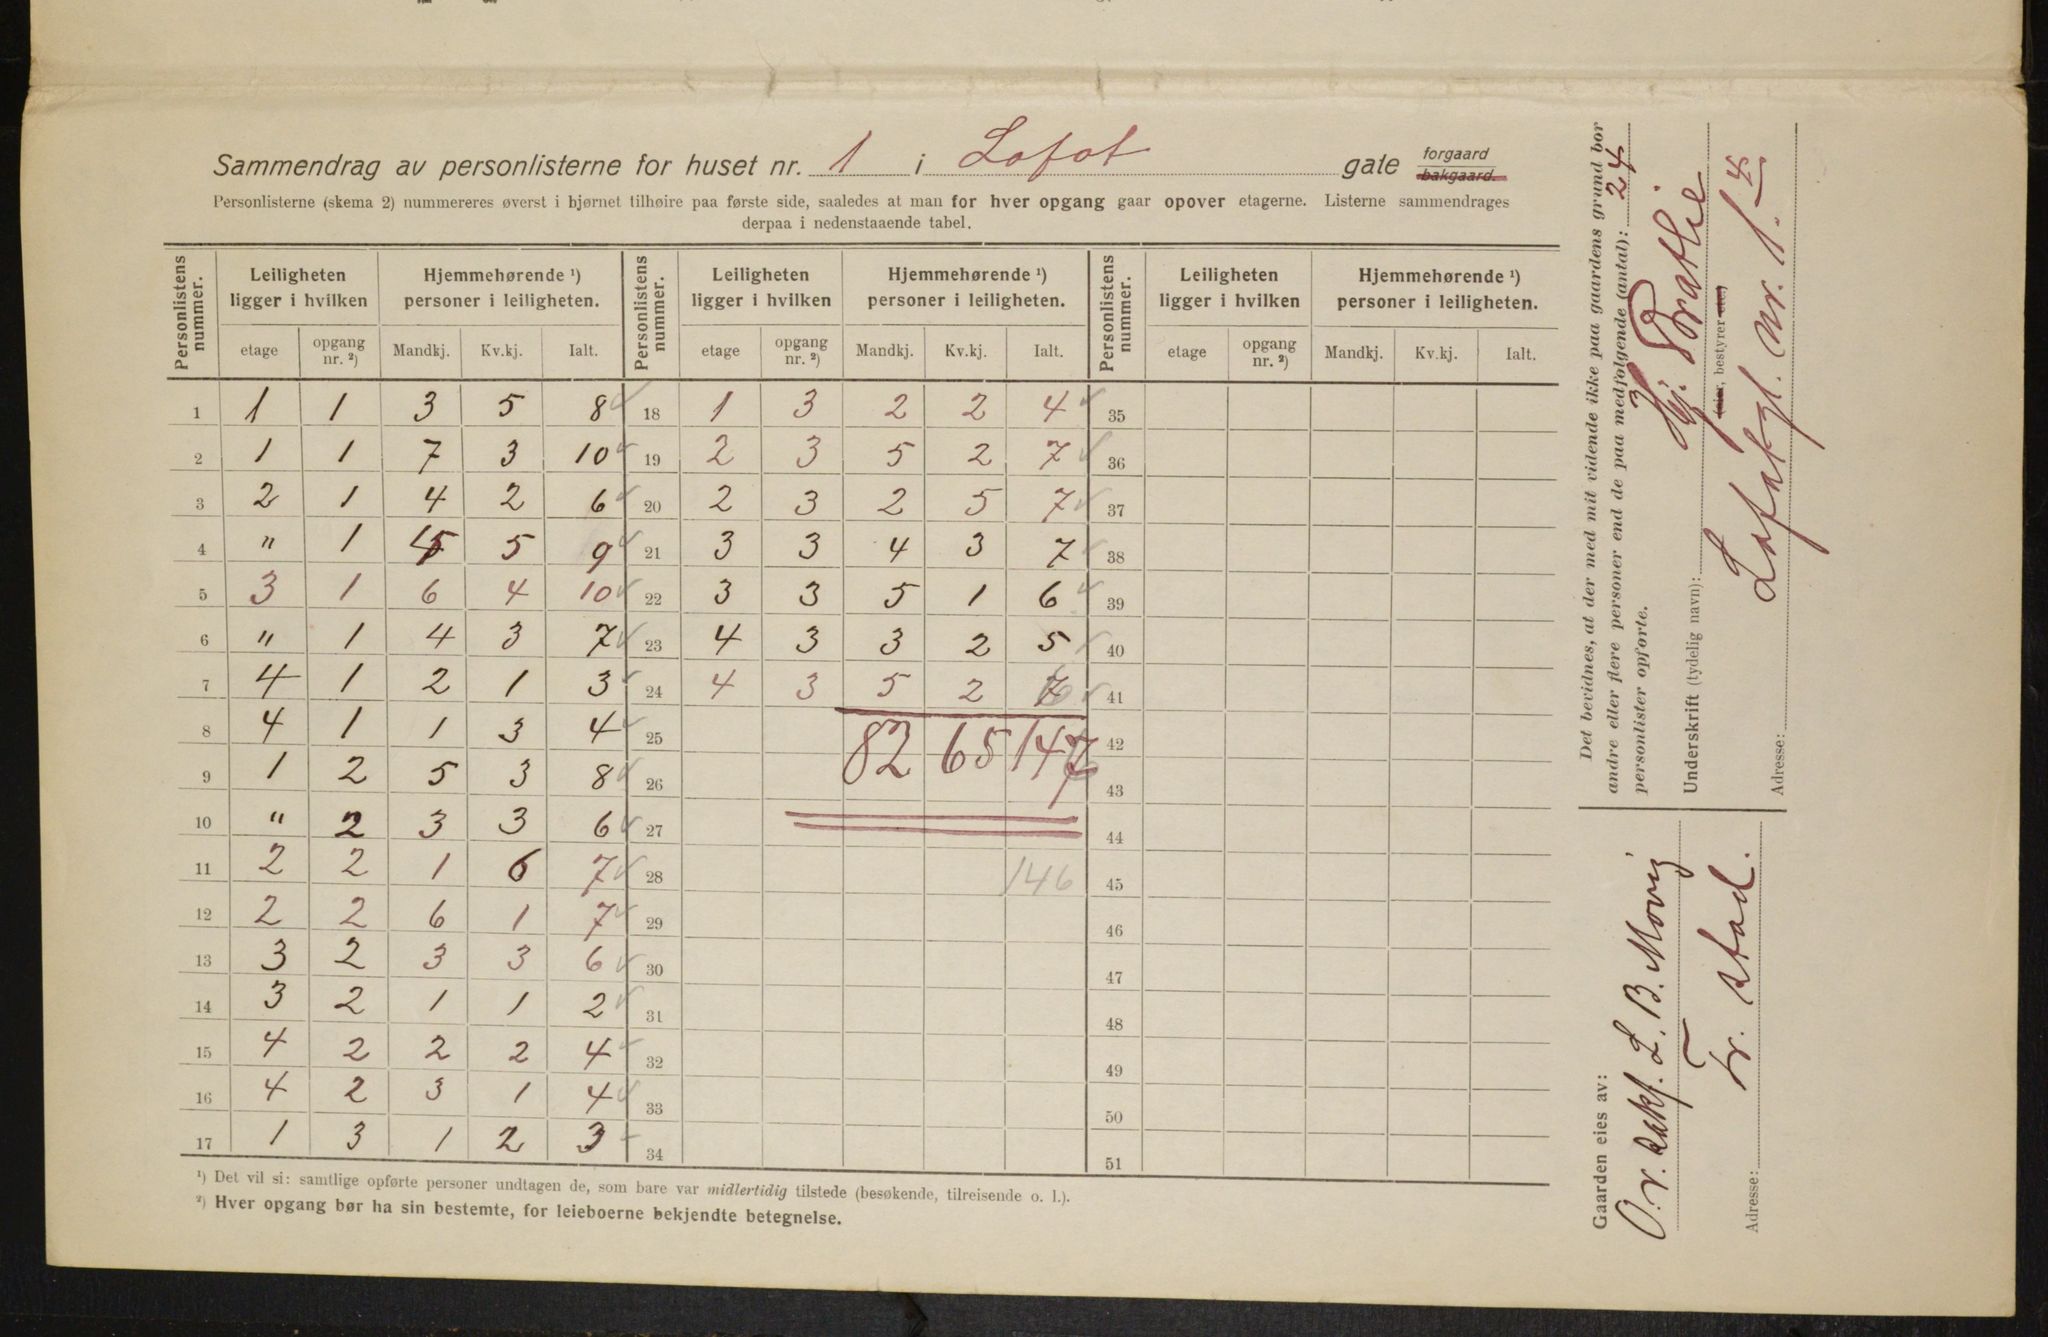 Sammendrag av personlisterne for huset nr. 1 i Lofot gate forgaard bakgaard.
Personlisterne (skema 2) nummereres øverst i hjørnet tilhøire paa første side, saaledes at man for hver opgang gaar opover etagerne. Listerne sammendrages
derpaa i nedenstaaende tabel.
Personlistens nummer. Leiligheten ligger i hvilken Hjemmehørende ¹) personer i leiligheten. Personlistens nummer. Leiligheten ligger i hvilken Hjemmehørende ¹) personer i leiligheten. Personlistens nummer. Leiligheten ligger i hvilken Hjemmehørende ¹) personer i leiligheten.
etage opgang nr. ²) Mandkj. Kv.kj. Ialt. etage opgang nr. ²) Mandkj. Kv.kj. Ialt. etage opgang nr. ²) Mandkj. Kv.kj. Ialt.
1 1 1 3 5 8 ✓ 18 1 3 2 2 4 ✓ 35
2 1 1 7 3 10 ✓ 19 2 3 5 2 7 ✓ 36
3 2 1 4 2 6 ✓ 20 2 3 2 5 7 ✓ 37
4 " 1 4 5 9 ✓ 21 3 3 4 3 7 ✓ 38
5 3 1 6 4 10 ✓ 22 3 3 5 1 6 ✓ 39
6 " 1 4 3 7 ✓ 23 4 3 3 2 5 ✓ 40
7 4 1 2 1 3 ✓ 24 4 3 5 2 7 ✓ 41
8 4 1 1 3 4 ✓ 25 82 65 147 42
9 1 2 5 3 8 ✓ 26 43
10 " 2 3 3 6 ✓ 27 44
11 2 2 1 6 7 ✓ 28 146 45
12 2 2 6 1 7 ✓ 29 46
13 3 2 3 3 6 ✓ 30 47
14 3 2 1 1 2 ✓ 31 48
15 4 2 2 2 4 ✓ 32 49
16 4 2 3 1 4 ✓ 33 50
17 1 3 1 2 3 ✓ 34 51
¹) Det vil si: samtlige opførte personer undtagen de, som bare var midlertidig tilstede (besøkende, tilreisende o. l.).
²) Hver opgang bør ha sin bestemte, for leieboerne bekjendte betegnelse.
Det bevidnes, at der med mit vidende ikke paa gaardens grund bor
andre eller flere personer end de paa medfølgende (antal): 24
personlister opførte.
Underskrift (tydelig navn): Hj. Brathe
(eier, bestyrer etc.)
Adresse: Lofotgt. Nr. 1. 4
Gaarden eies av:
O.r. sakf. L. B. Movig
Adresse: Fr. stad.